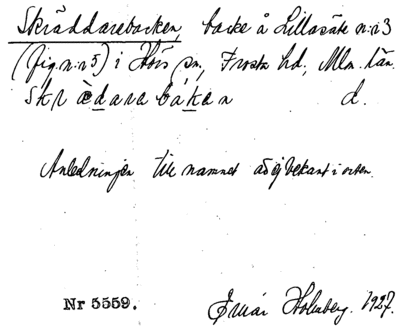 Skräddarebacken, backe å Lillasäte n:r 3
(fig. n:r 5) i Hörs sn, Frosta hd, Mlm. län.
skrädarebáken d.
Anledningen till namnet är ej bekant i orten.
Nr 5559. Ingvar Holmberg. 1927.